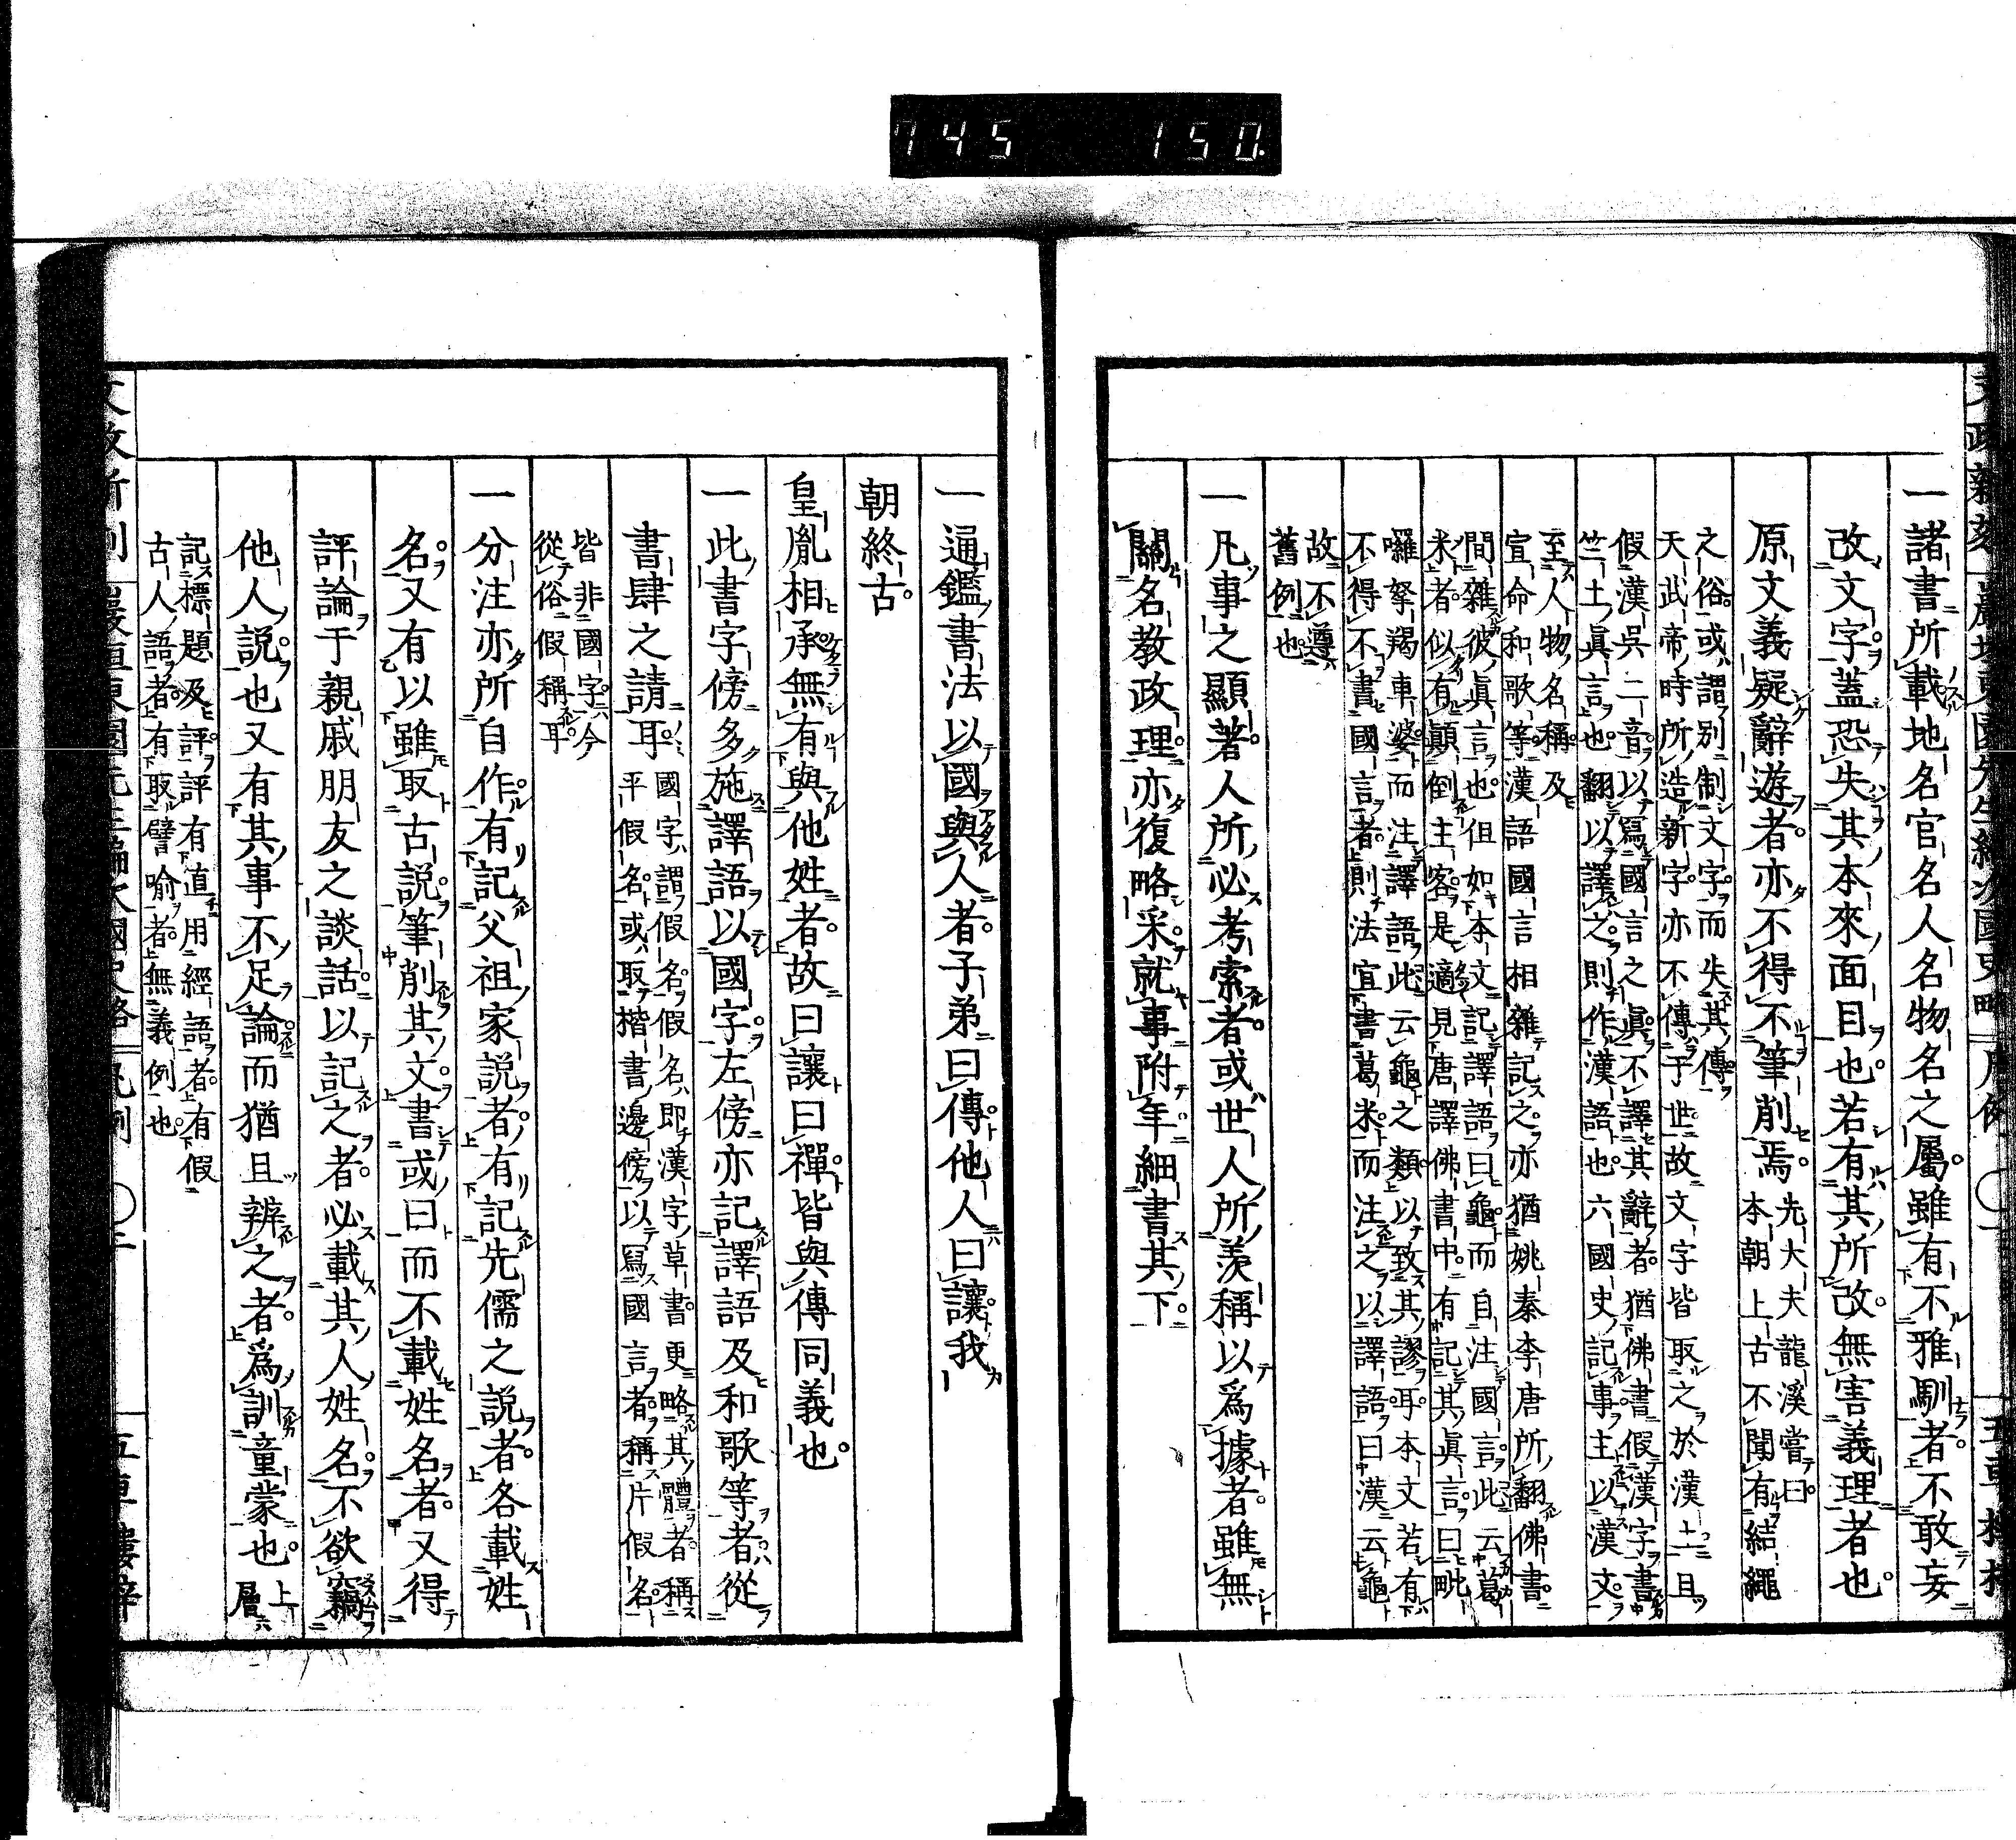 745 150.
一諸書所載地名官名人名物名之屬雖有不雅馴者不敢妄
改文字蓋恐失其本來面目也若有其所改無害義理者也
原文義疑辭遊者亦不得不筆削焉先大夫龍溪嘗曰
本朝上古不聞有結繩
之俗或謂別制文字而失其傳
天武帝時所造新字亦不傳于世故文字皆取之於漢土且
假漢吳二音以寫國言之眞不譯其辭者猶佛書假漢字書
竺土眞言也翻以譯之則作漢語也六國史記事主以漢文
至人物名稱及
宣命和歌等漢語國言相雜記之亦猶姚秦李唐所翻佛書
間雜彼眞言也但如本文記譯語曰龜而自注國言此云葛
米者似有顚倒主客是適見唐譯佛書中有記其眞言曰毗
囉拏羯車婆而注譯語此云龜之類以致其謬耳本文若有
不得不書國言者則法宜書葛米而注之以譯語曰漢云龜
故不遵
舊例也
一凡事之顯著人所必考索者或世人所羨稱以爲據者雖無
關名教政理亦復略采就事附年細書其下
一通鑑書法以國與人者子弟曰傳他人曰讓我
朝終古
皇胤相承無有與他姓者故曰讓曰禪皆與傳同義也
一此書字傍多施譯語以國字左傍亦記譯語及和歌等者從
書肆之請耳國字謂假名假名卽漢字草書更略其體者稱
平假名或取楷書邊傍以寫國言者稱片假名
皆非國字今
從俗假稱耳
一分注亦所自作有記父祖家説者有記先儒之説者各載姓
名又有以雖取古説筆削其文書或曰而不載姓名者又得
評論于親戚朋友之談話以記之者必載其人姓名不欲竊
他人説也又有其事不足論而猶且辨之者爲訓童蒙也上
層
記標題及評評有直用經語者有假
古人語者有取譬喻者無義例也